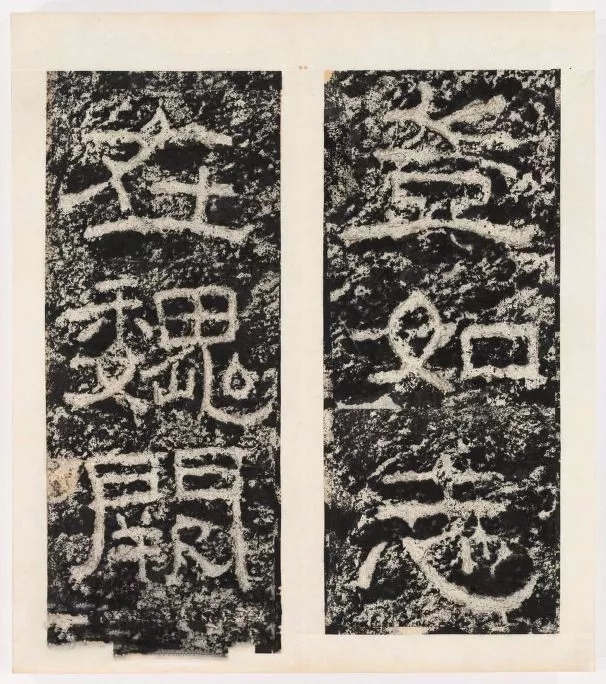 如志
在魏闕